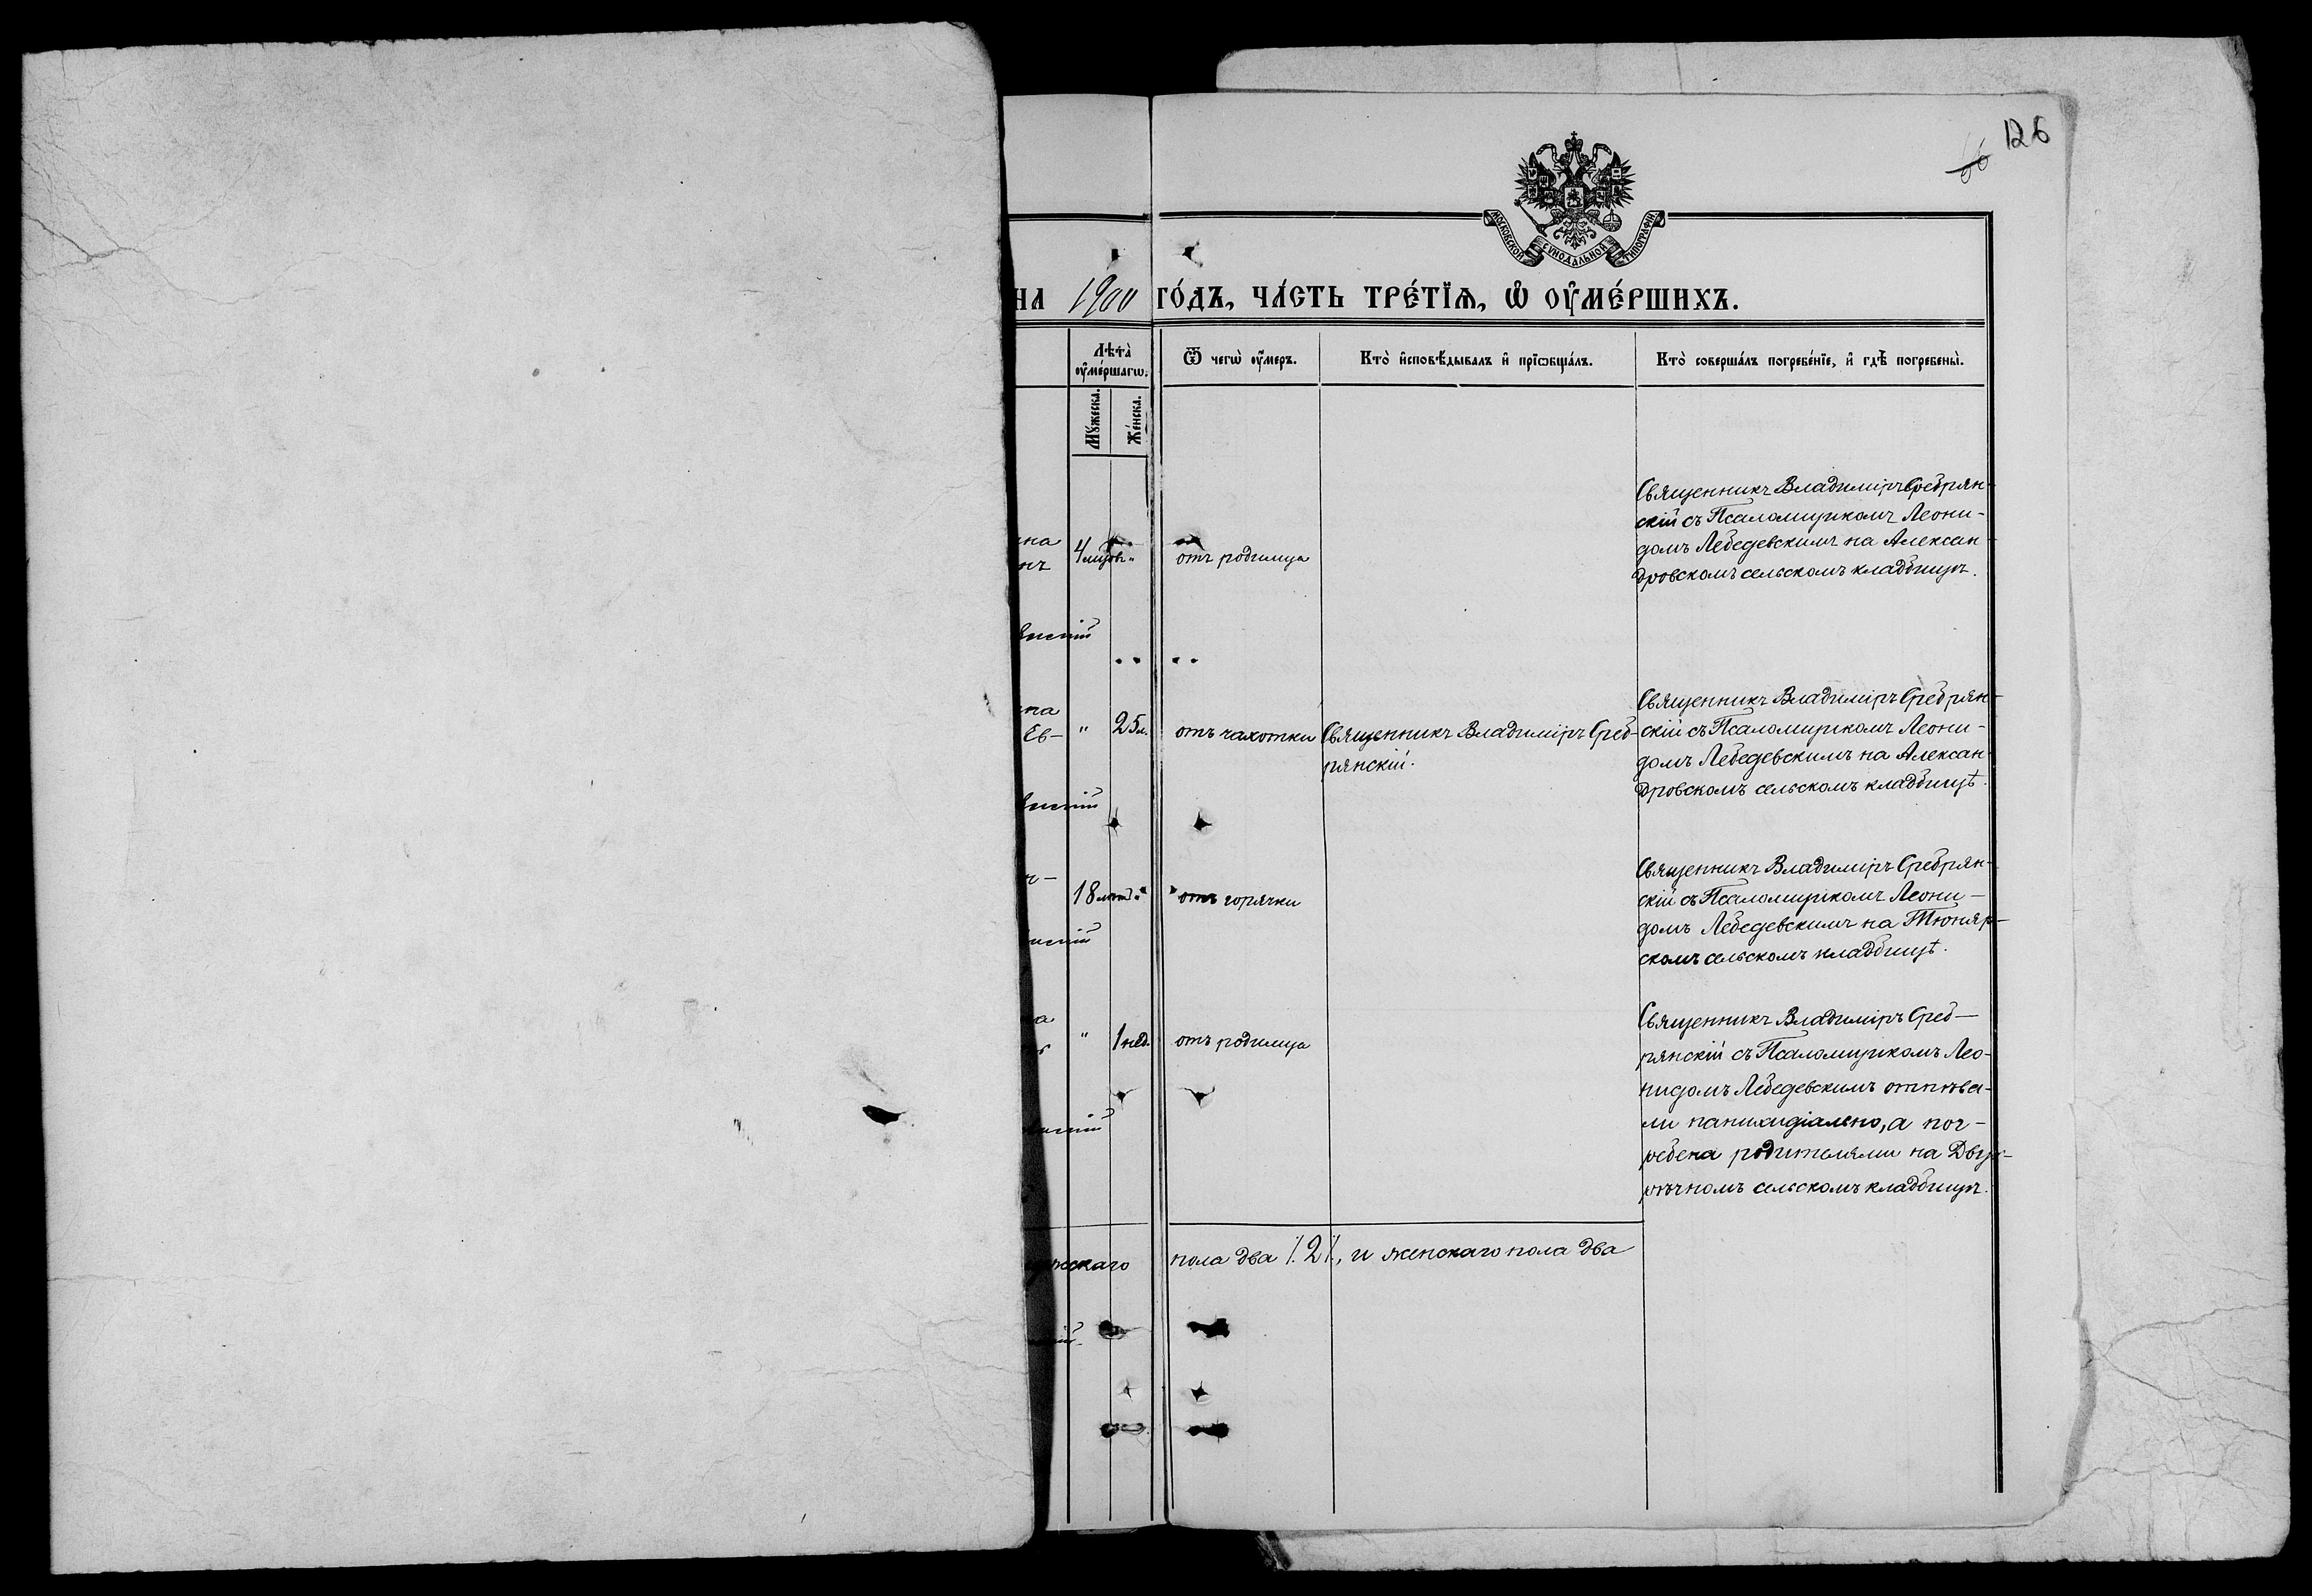 126
МОСКОВСКОЙ СѴНОДАЛЬНОЙ ТИПОГРАФІИ
НА 1900 ГО́ДЪ, ЧА́СТЬ ТРЕ́ТІѦ, Ѡ҆ ОУ҆МЕ́РШИХЪ.
Лѣ́та̀ оу҆ме́ршагѡ.
Мꙋ́жеска.
Же́нска.
Ѿ чегѡ̀ оу҆́меръ.
Кто̀ и҆сповѣ́дывалъ и҆ прїѡбща́лъ.
Кто̀ соверша́лъ погребе́нїе, и҆ гдѣ̀ погребены̀.
на
нъ
4 мцовъ "
отъ родимца
Священникъ Владиміръ Сребрян-
скій съ Псаломщикомъ Леони-
домъ Лебедевскимъ на Алексан-
дровскомъ сельскомъ кладбищѣ.
на
Ев-
" 25 л.
отъ чахотки
Священникъ Владиміръ Среб-
рянскій.
Священникъ Владиміръ Сребрян-
скій съ Псаломщикомъ Леони-
домъ Лебедевскимъ на Алексан-
дровскомъ сельскомъ кладбищѣ.
18 лѣтъ "
отъ горячки
Священникъ Владиміръ Сребрян-
скій съ Псаломщикомъ Леони-
домъ Лебедевскимъ на Тюняр-
скомъ сельскомъ кладбищѣ.
на
" 1 нед.
отъ родимца
Священникъ Владиміръ Среб-
рянскій съ Псаломщикомъ Лео-
нидомъ Лебедевскимъ отпѣва-
ли панихидіально, а пог-
ребена родителями на Двух-
рѣчномъ сельскомъ кладбищѣ.
мужскаго пола два /.2/., и женскаго пола два